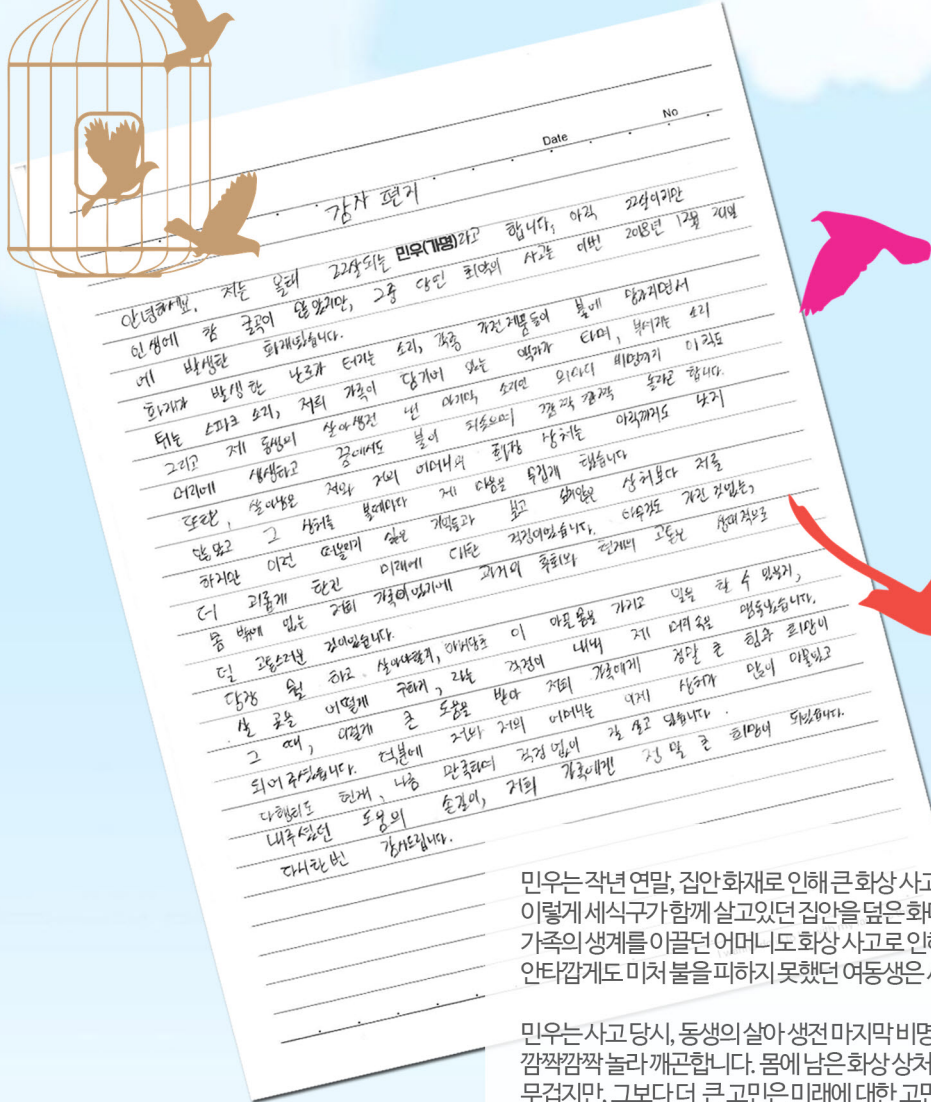 Date No
감사 편지
안녕하세요, 저는 올해 22살되는 민우(가명)라고 합니다, 아직 22살이지만
인생에 참 굴곡이 많았지만, 그중 당한 최악의 사고는 이번 2018년 12월
에 발생한 화재였습니다.
화재가 발생한 난로가 터지는 소리, 각종 가전제품들이 불에 당겨지면서
튀는 스파크 소리, 저희 가족이 담겨져 있는 액자가 타며, 부서지는 소리
그리고 제 동생이 살아생전 낸 마지막 소리인 외마디 비명까지 아직도
머리에 생생하고 꿈에서도 불이 치솟으며 깜짝깜짝 놀라곤 합니다.
또한, 살아남은 저와 저희 어머니의 화상 상처는 아직까지도 낫지
않았고 그 상처를 볼때마다 제 마음을 무겁게 했습니다
하지만 이런 떠올리기 싫은 기억들과 싶지않은 상처보다 저를
더 괴롭게 한건 미래에 대한 걱정이었습니다. 아무것도 가진 것없는,
몸 밖에 없는 저희 가족이었기에 과거의 후회와 현재의 고통은 상대적으로
덜 고통스러운 것이었습니다.
당장 뭘 하고 살아야할지, 애시당초 이 아픈몸을 가지고 일을 할 수 있을지,
살 곳은 어떻게 구하지, 라는 걱정이 내내 제 머리속을 맴돌았습니다.
그 때, 이렇게 큰 도움을 받아 저희 가족에게 정말 큰 힘과 희망이
되어 주셨습니다. 덕분에 저와 저의 어머니는 이제 상처가 많이 아물었고
다행히도 현재, 나름 만족하며 걱정 없이 잘 살고 있습니다.
내주셨던 도움의 손길이, 저희 가족에겐 정말 큰 희망이 되었습니다.
다시한번 감사드립니다.
민우는 작년 연말, 집안 화재로 인해 큰 화상 사고
이렇게 세식구가 함께 살고있던 집안을 덮은 화마
가족의 생계를 이끌던 어머니도 화상 사고로 인해
안타깝게도 미처 불을 피하지 못했던 여동생은
민우는 사고 당시, 동생의 살아 생전 마지막 비명
깜짝깜짝 놀라 깨곤합니다. 몸에 남은 화상 상처
무겁지만, 그보다 더 큰 고민은 미래에 대한 고민